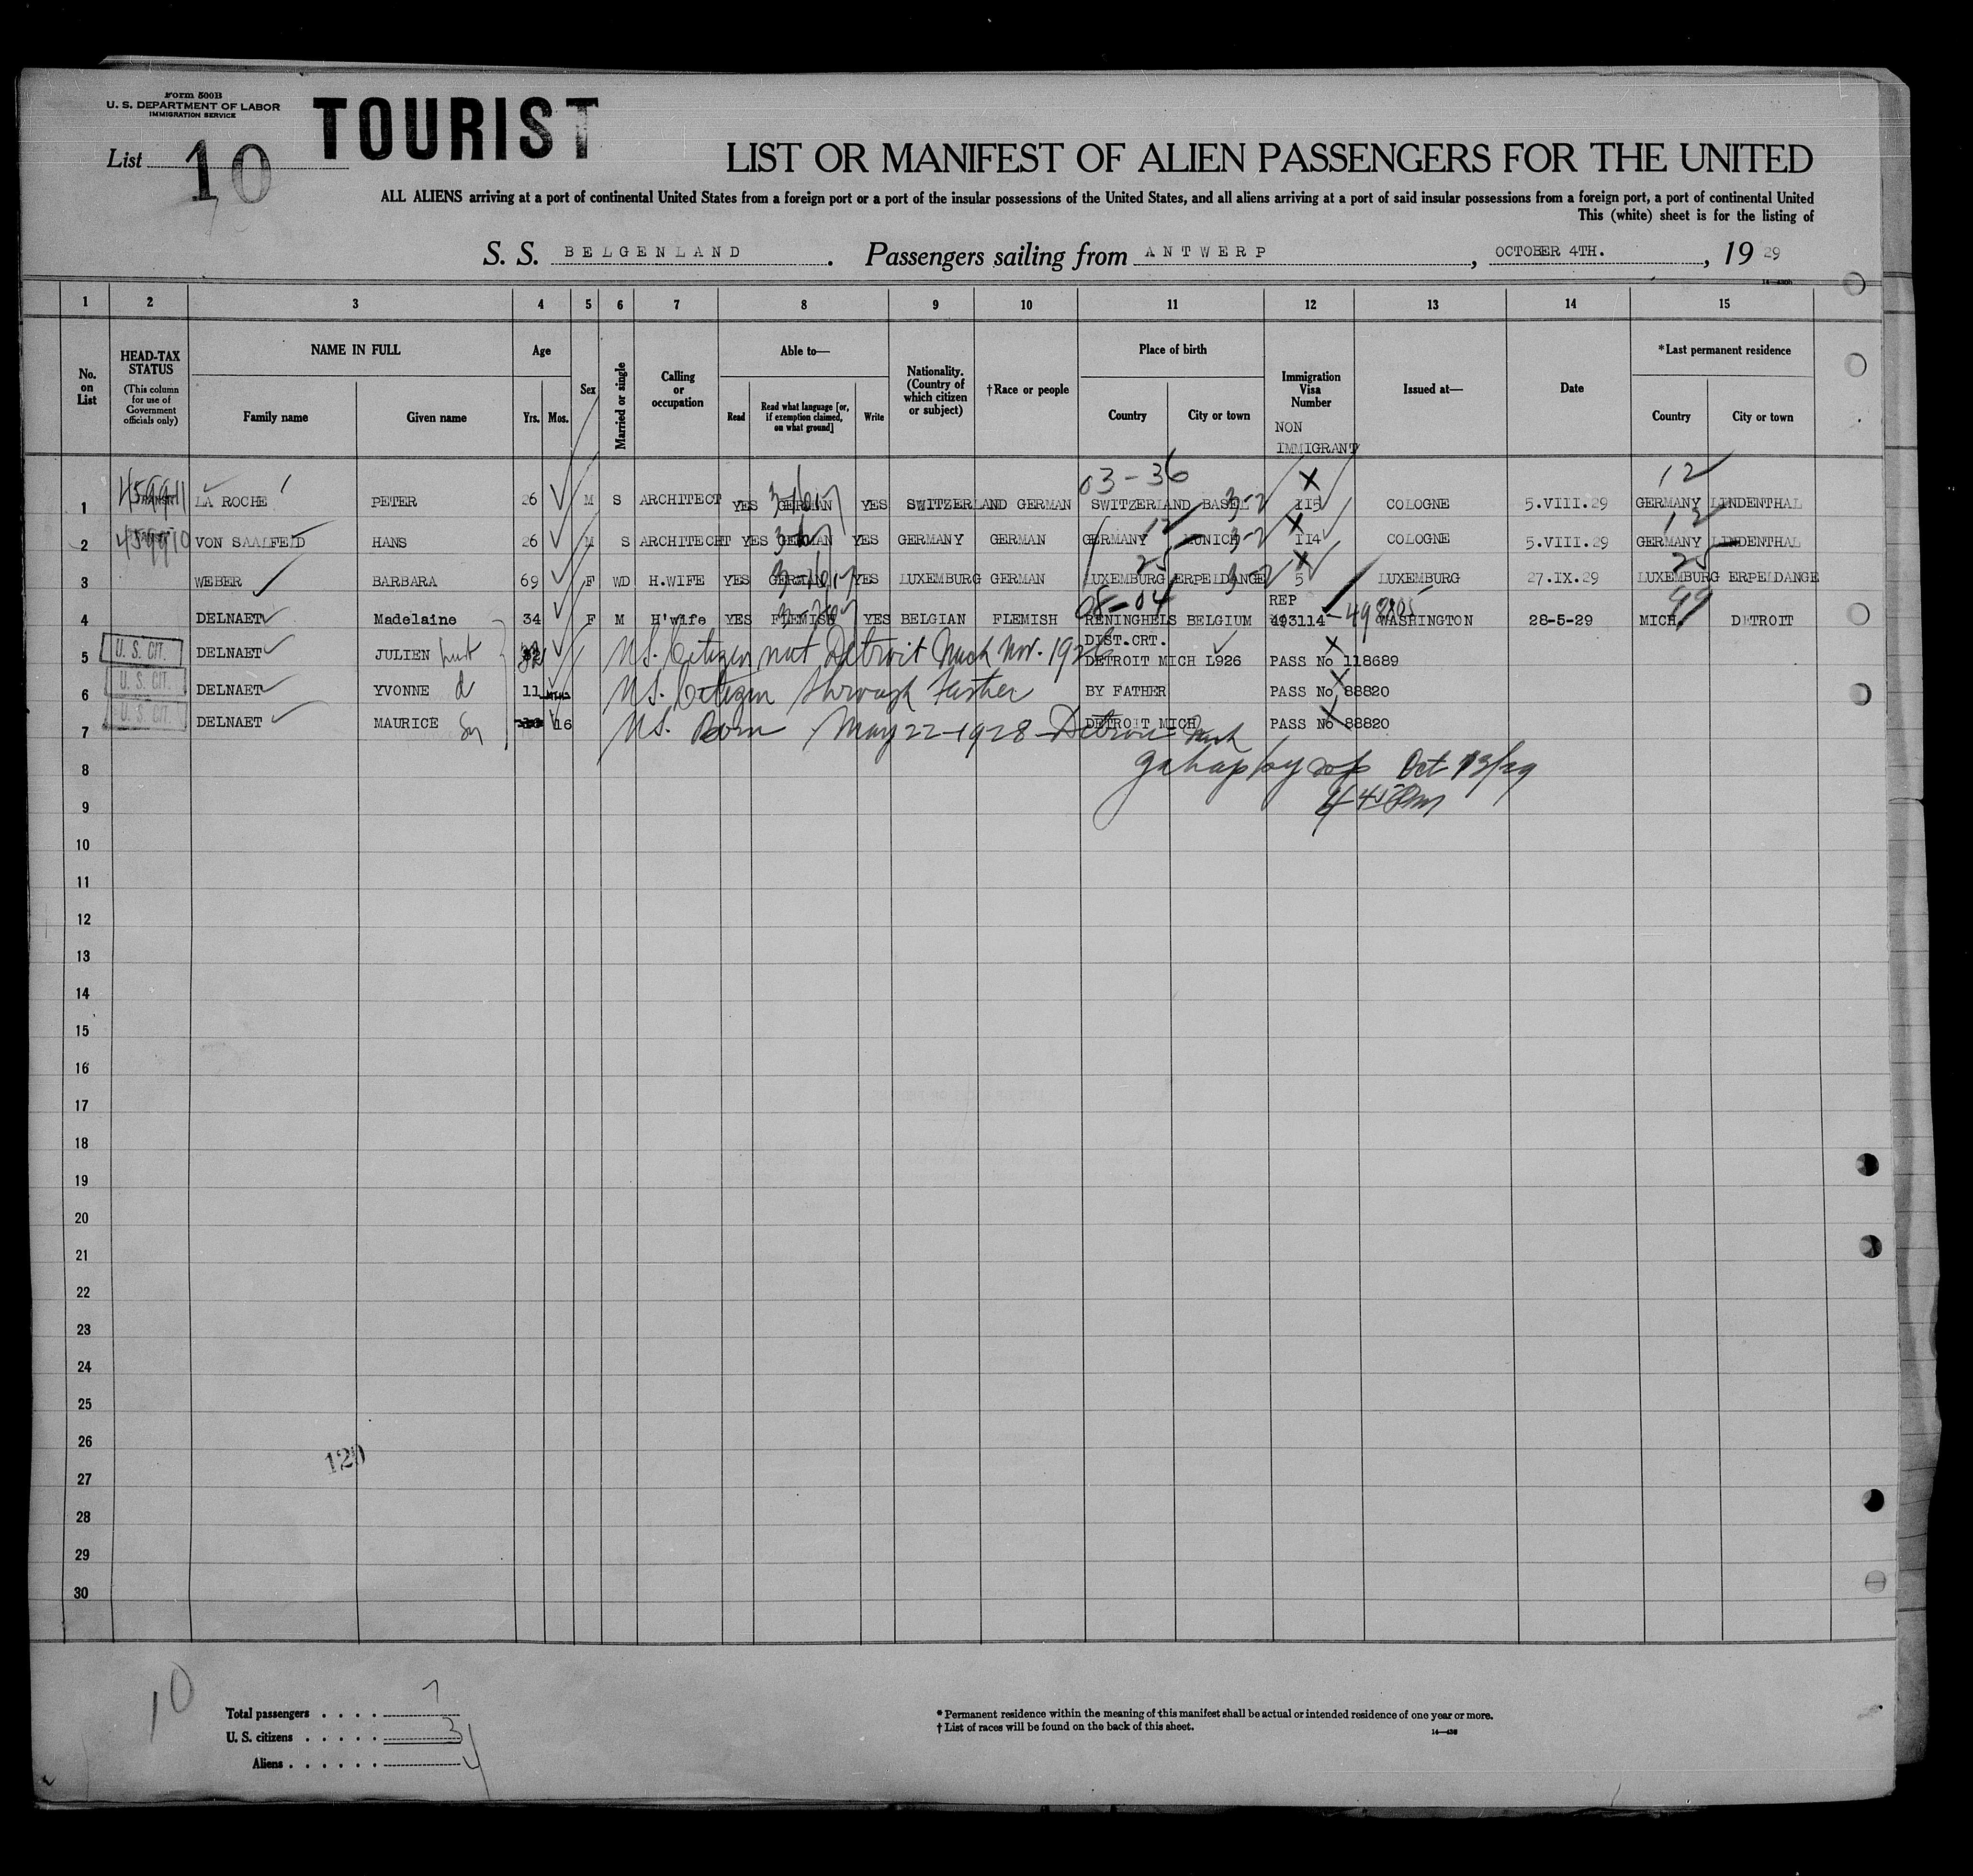 Form 500B
U. S. DEPARTMENT OF LABOR
IMMIGRATION SERVICE
TOURIST
List 10
LIST OR MANIFEST OF ALIEN PASSENGERS FOR THE UNITED
ALL ALIENS arriving at a port of continental United States from a foreign port or a port of the insular possessions of the United States, and all aliens arriving at a port of said insular possessions from a foreign port, a port of continental United
This (white) sheet is for the listing of
S. S. BELGENLAND . Passengers sailing from ANTWERP , OCTOBER 4TH. , 19 29
1 2 3 4 5 6 7 8 9 10 11 12 13 14 15
No. on List
HEAD-TAX STATUS (This column for use of Government officials only)
NAME IN FULL
Family name Given name
Age
Yrs. Mos.
Sex
Married or single
Calling or occupation
Able to—
Read Read what language [or, if exemption claimed, on what ground] Write
Nationality. (Country of which citizen or subject)
†Race or people
Place of birth
Country City or town
Immigration Visa Number
NON IMMIGRANT
Issued at—
Date
*Last permanent residence
Country City or town
03-36 X 12
1 LA ROCHE PETER 26 M S ARCHITECT YES GERMAN YES SWITZERLAND GERMAN SWITZERLAND BASEL 3-2 115 COLOGNE 5.VIII.29 GERMANY LINDENTHAL
2 459910 VON SAALFELD HANS 26 M S ARCHITECHT YES GERMAN YES GERMANY GERMAN GERMANY MUNICH 3-2 114 COLOGNE 5.VIII.29 GERMANY LINDENTHAL
25 X 25
3 WEBER BARBARA 69 F WD H.WIFE YES GERMAN YES LUXEMBURG GERMAN LUXEMBURG ERPELDANGE 3-2 5 LUXEMBURG 27.IX.29 LUXEMBURG ERPELDANGE
08-04 REP 99
4 DELNAET Madelaine 34 F M H'wife YES FLEMISH YES BELGIAN FLEMISH RENINGHELS BELGIUM 493114 WASHINGTON 28-5-29 MICH. DETROIT
DIST.CRT.
5 U. S. CIT. DELNAET JULIEN husb 32 U.S. Citizen nat Detroit Mich Nov. 1926 DETROIT MICH 1926 PASS No 118689
6 U. S. CIT. DELNAET YVONNE d 11 U.S. Citizen through Father BY FATHER PASS No 88820
7 U. S. CIT. DELNAET MAURICE Sn 16 U.S. Born May 22-1928 Detroit Mich DETROIT MICH PASS No 88820
8 Oct 13/29
9 4 45 Pm
10
11
12
13
14
15
16
17
18
19
20
21
22
23
24
25
26
120
27
28
29
30
10
Total passengers . . . . 7
U. S. citizens . . . . . 3
Aliens . . . . . . 4
* Permanent residence within the meaning of this manifest shall be actual or intended residence of one year or more.
† List of races will be found on the back of this sheet.